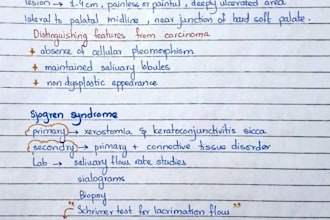 lesion → 1-4cm, painless or painful, deeply ulcerated area
lateral to palatal midline, near junction of hard soft palate.
Distinguishing features from carcinoma
+ absence of cellular pleomorphism
+ maintained salivary lobules
+ non dysplastic appearance
Sjogren syndrome
primary → xerostomia & keratoconjunctivitis sicca
secondry → primary + connective tissue disorder
Lab → salivary flow rate studies
sialograms
Biopsy
"Schrimer test for lacrimation flow"